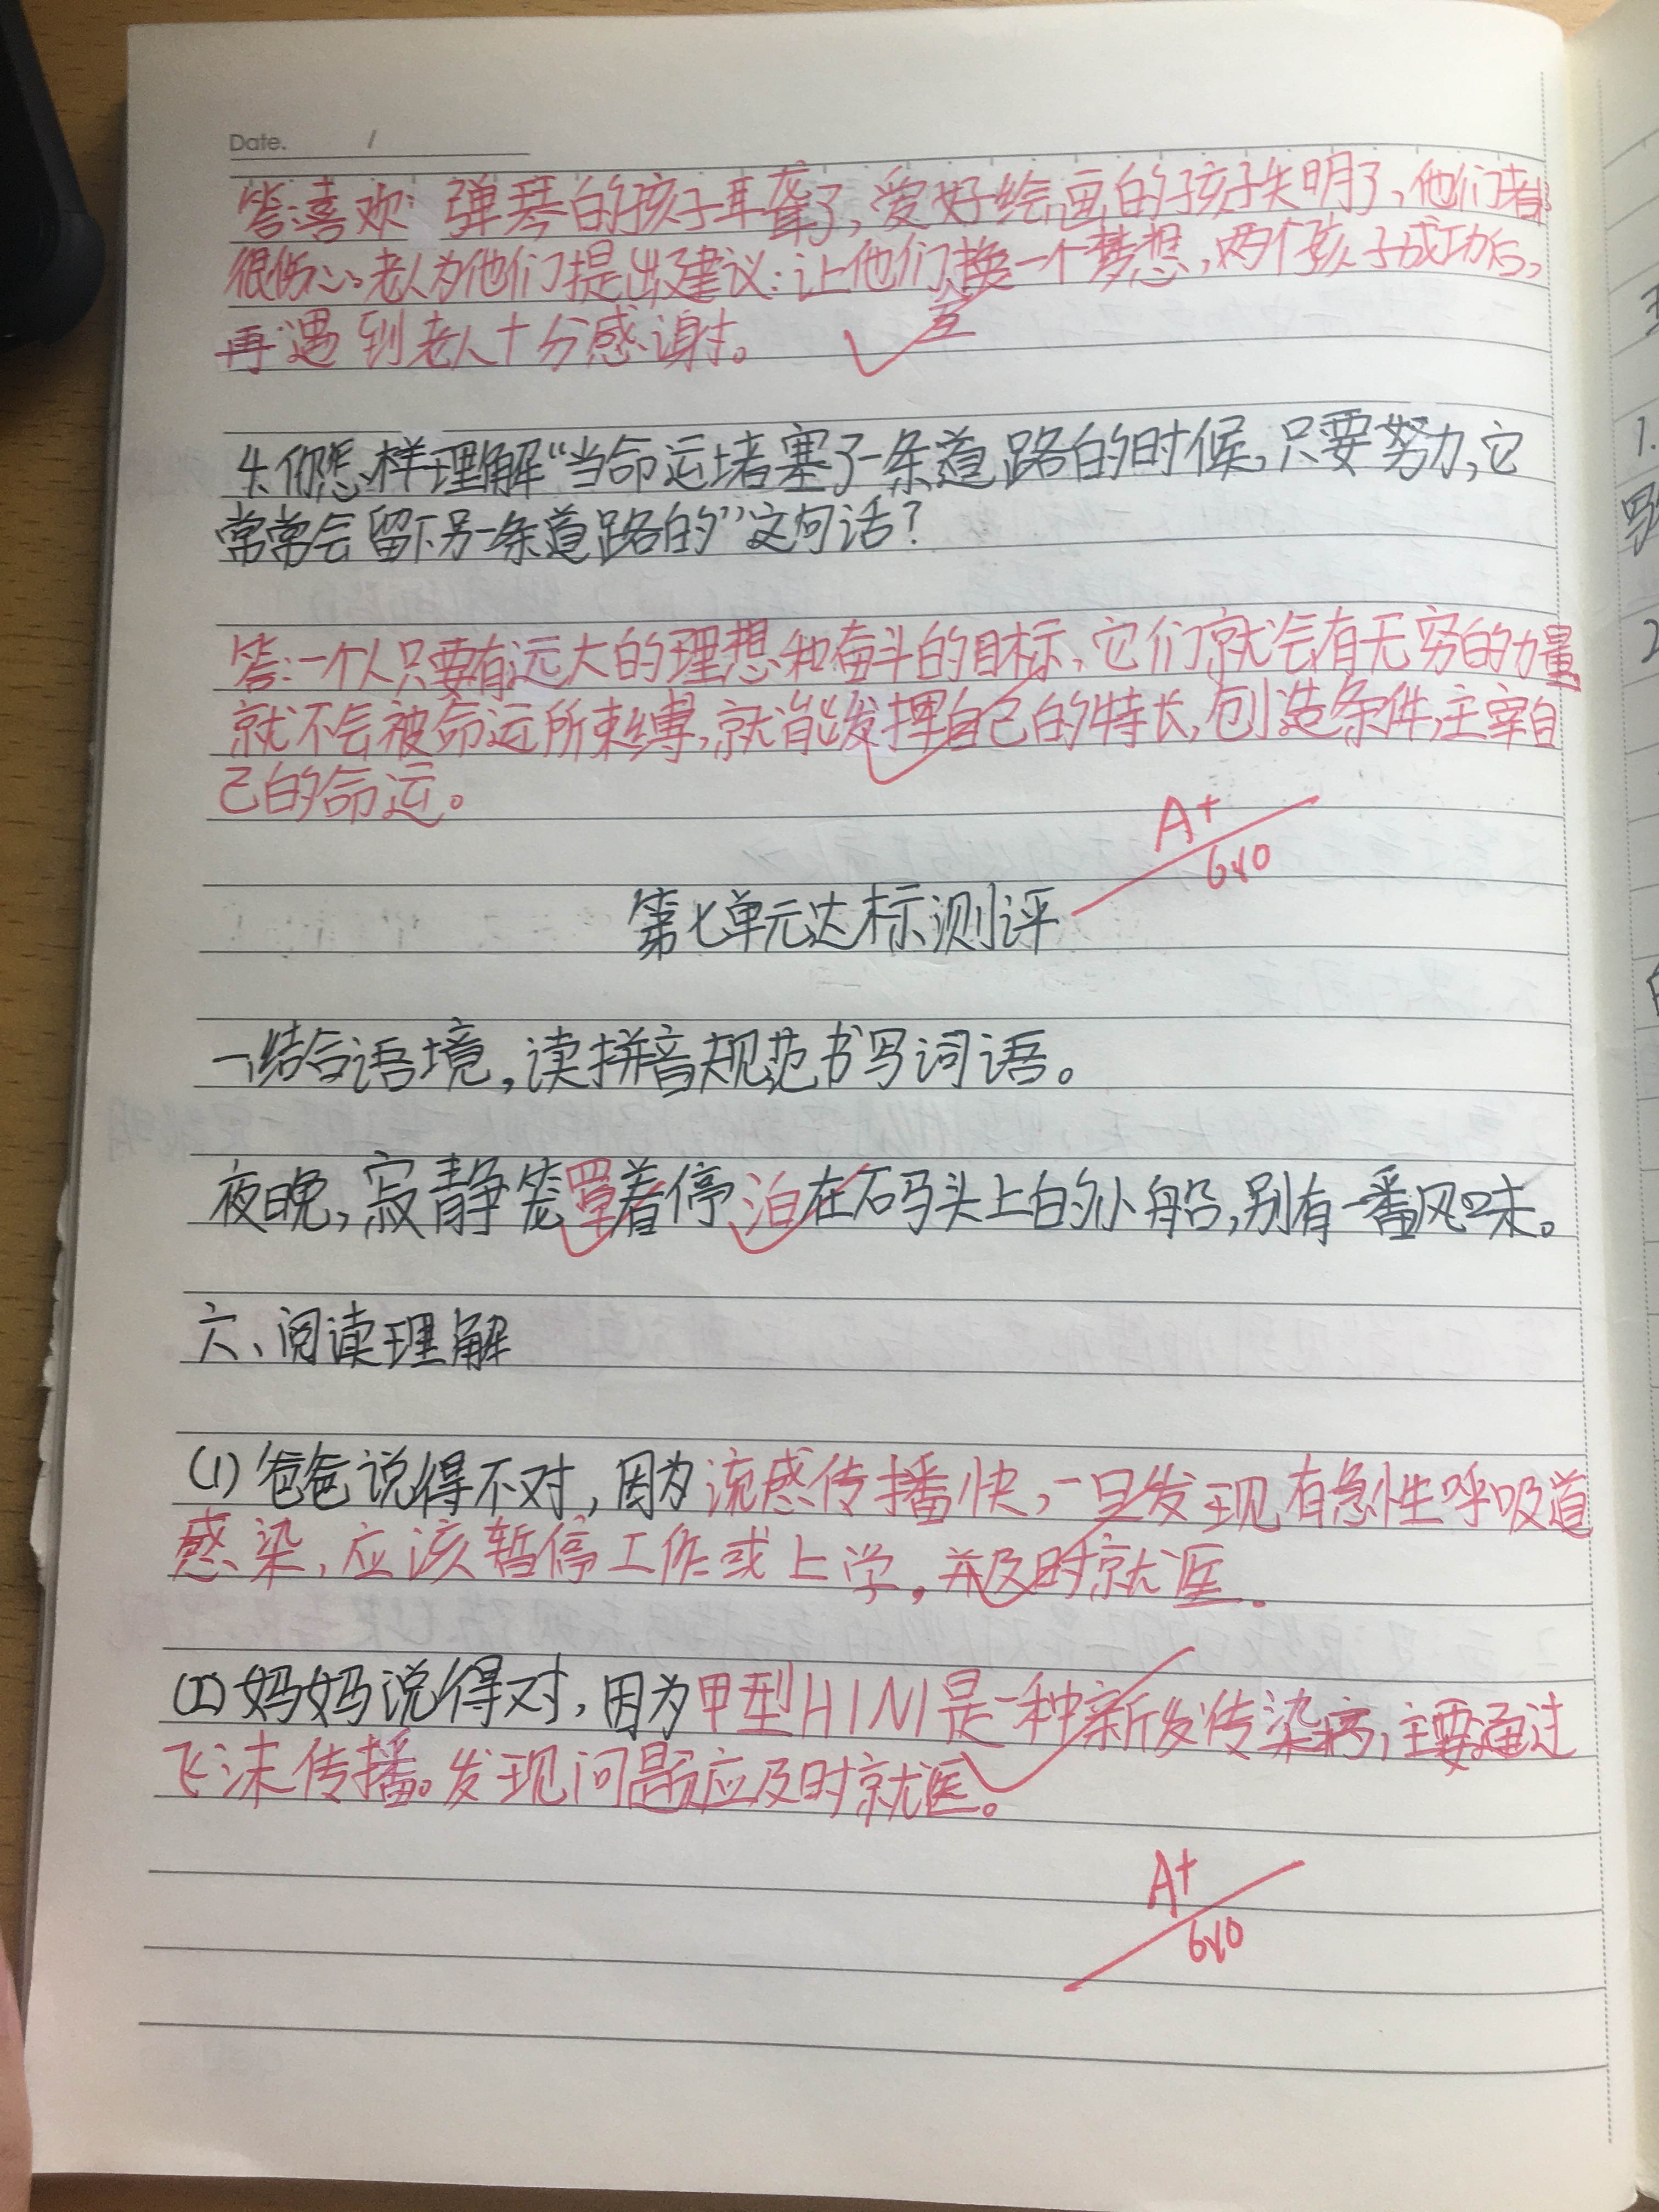 Date. /
答:喜欢弹琴的孩子耳聋了,爱好绘画的孩子失明了,他们都
很伤心。老人为他们提出建议:让他们换一个梦想,两个孩子成功后,
互
再遇到老人十分感谢。
4.你怎样理解“当命运堵塞了一条道路的时候,只要努力,它
常常会留下另一条道路的”这句话?
答:一个人只要有远大的理想和奋斗的目标,它们就会有无穷的力量
就不会被命运所束缚,就能发挥自己的特长,创造条件,主宰自
己的命运。
A+
6.10
第七单元达标测评
一、结合语境,读拼音规范书写词语。
夜晚,寂静笼罩着停泊在码头上的小船,别有一番风味。
六、阅读理解
(1)爸爸说得不对,因为流感传播快,一旦发现有急性呼吸道
感染,应该暂停工作或上学,并及时就医.
(2)妈妈说得对,因为甲型H1N1是一种新发传染病,主要通过
飞沫传播。发现问题应及时就医。
A+
6.10